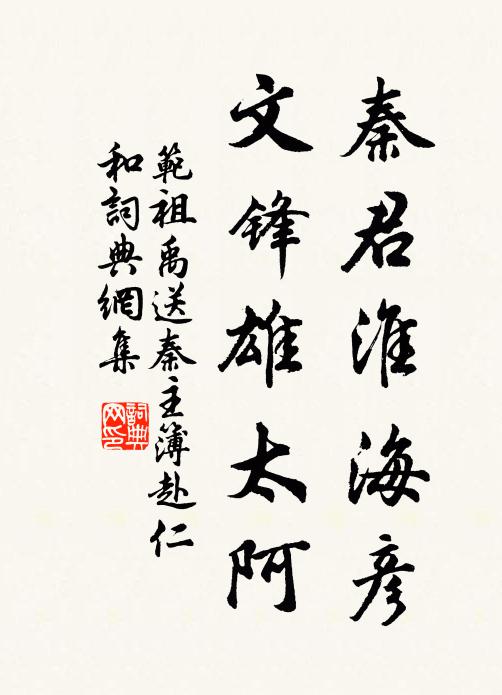 秦君淮海彦
文鋒雄太阿
範祖禹送秦主簿赴仁
和詞典網集
詞典
网印